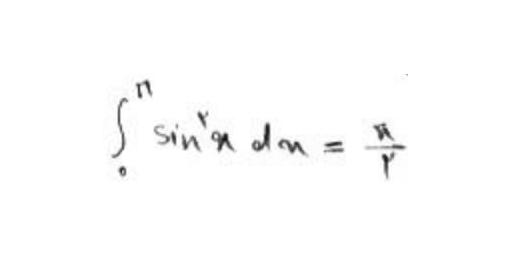 ∫₀^π sin^۲ x dx = π/۲